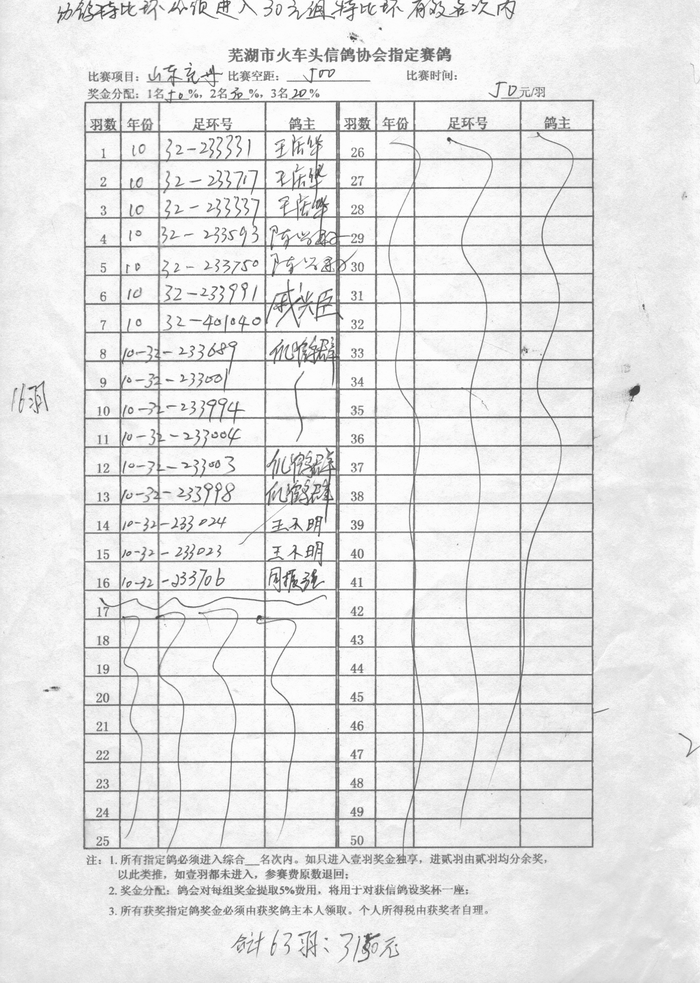 幼鸽特比环必须进入30元组,特比环有效名次内
芜湖市火车头信鸽协会指定赛鸽
比赛项目：山东兖州 比赛空距：500 比赛时间：
奖金分配：1名50%，2名30%，3名20% 50元/羽
羽数 年份 足环号 鸽主 羽数 年份 足环号 鸽主
1 10 32-233331 王庆华 26
2 10 32-233717 王庆华 27
3 10 32-233337 王庆华 28
4 10 32-233593 29
5 10 32-233750 30
6 10 32-233991 戚兴臣 31
7 10 32-401040 32
8 10-32-233689 33
9 10-32-233001 34
10 10-32-233994 35
11 10-32-233004 36
12 10-32-233003 37
13 10-32-233998 38
14 10-32-233024 王本明 39
15 10-32-233023 王本明 40
16 10-32-233706 周振强 41
17 42
18 43
19 44
20 45
21 46
22 47
23 48
24 49
25 50
16羽
注：1. 所有指定鸽必须进入综合__名次内。如只进入壹羽奖金独享，进贰羽由贰羽均分余奖，
以此类推，如壹羽都未进入，参赛费原数退回；
2. 奖金分配：鸽会对每组奖金提取5%费用，将用于对获信鸽设奖杯一座；
3. 所有获奖指定鸽奖金必须由获奖鸽主本人领取。个人所得税由获奖者自理。
合计63羽：3150元